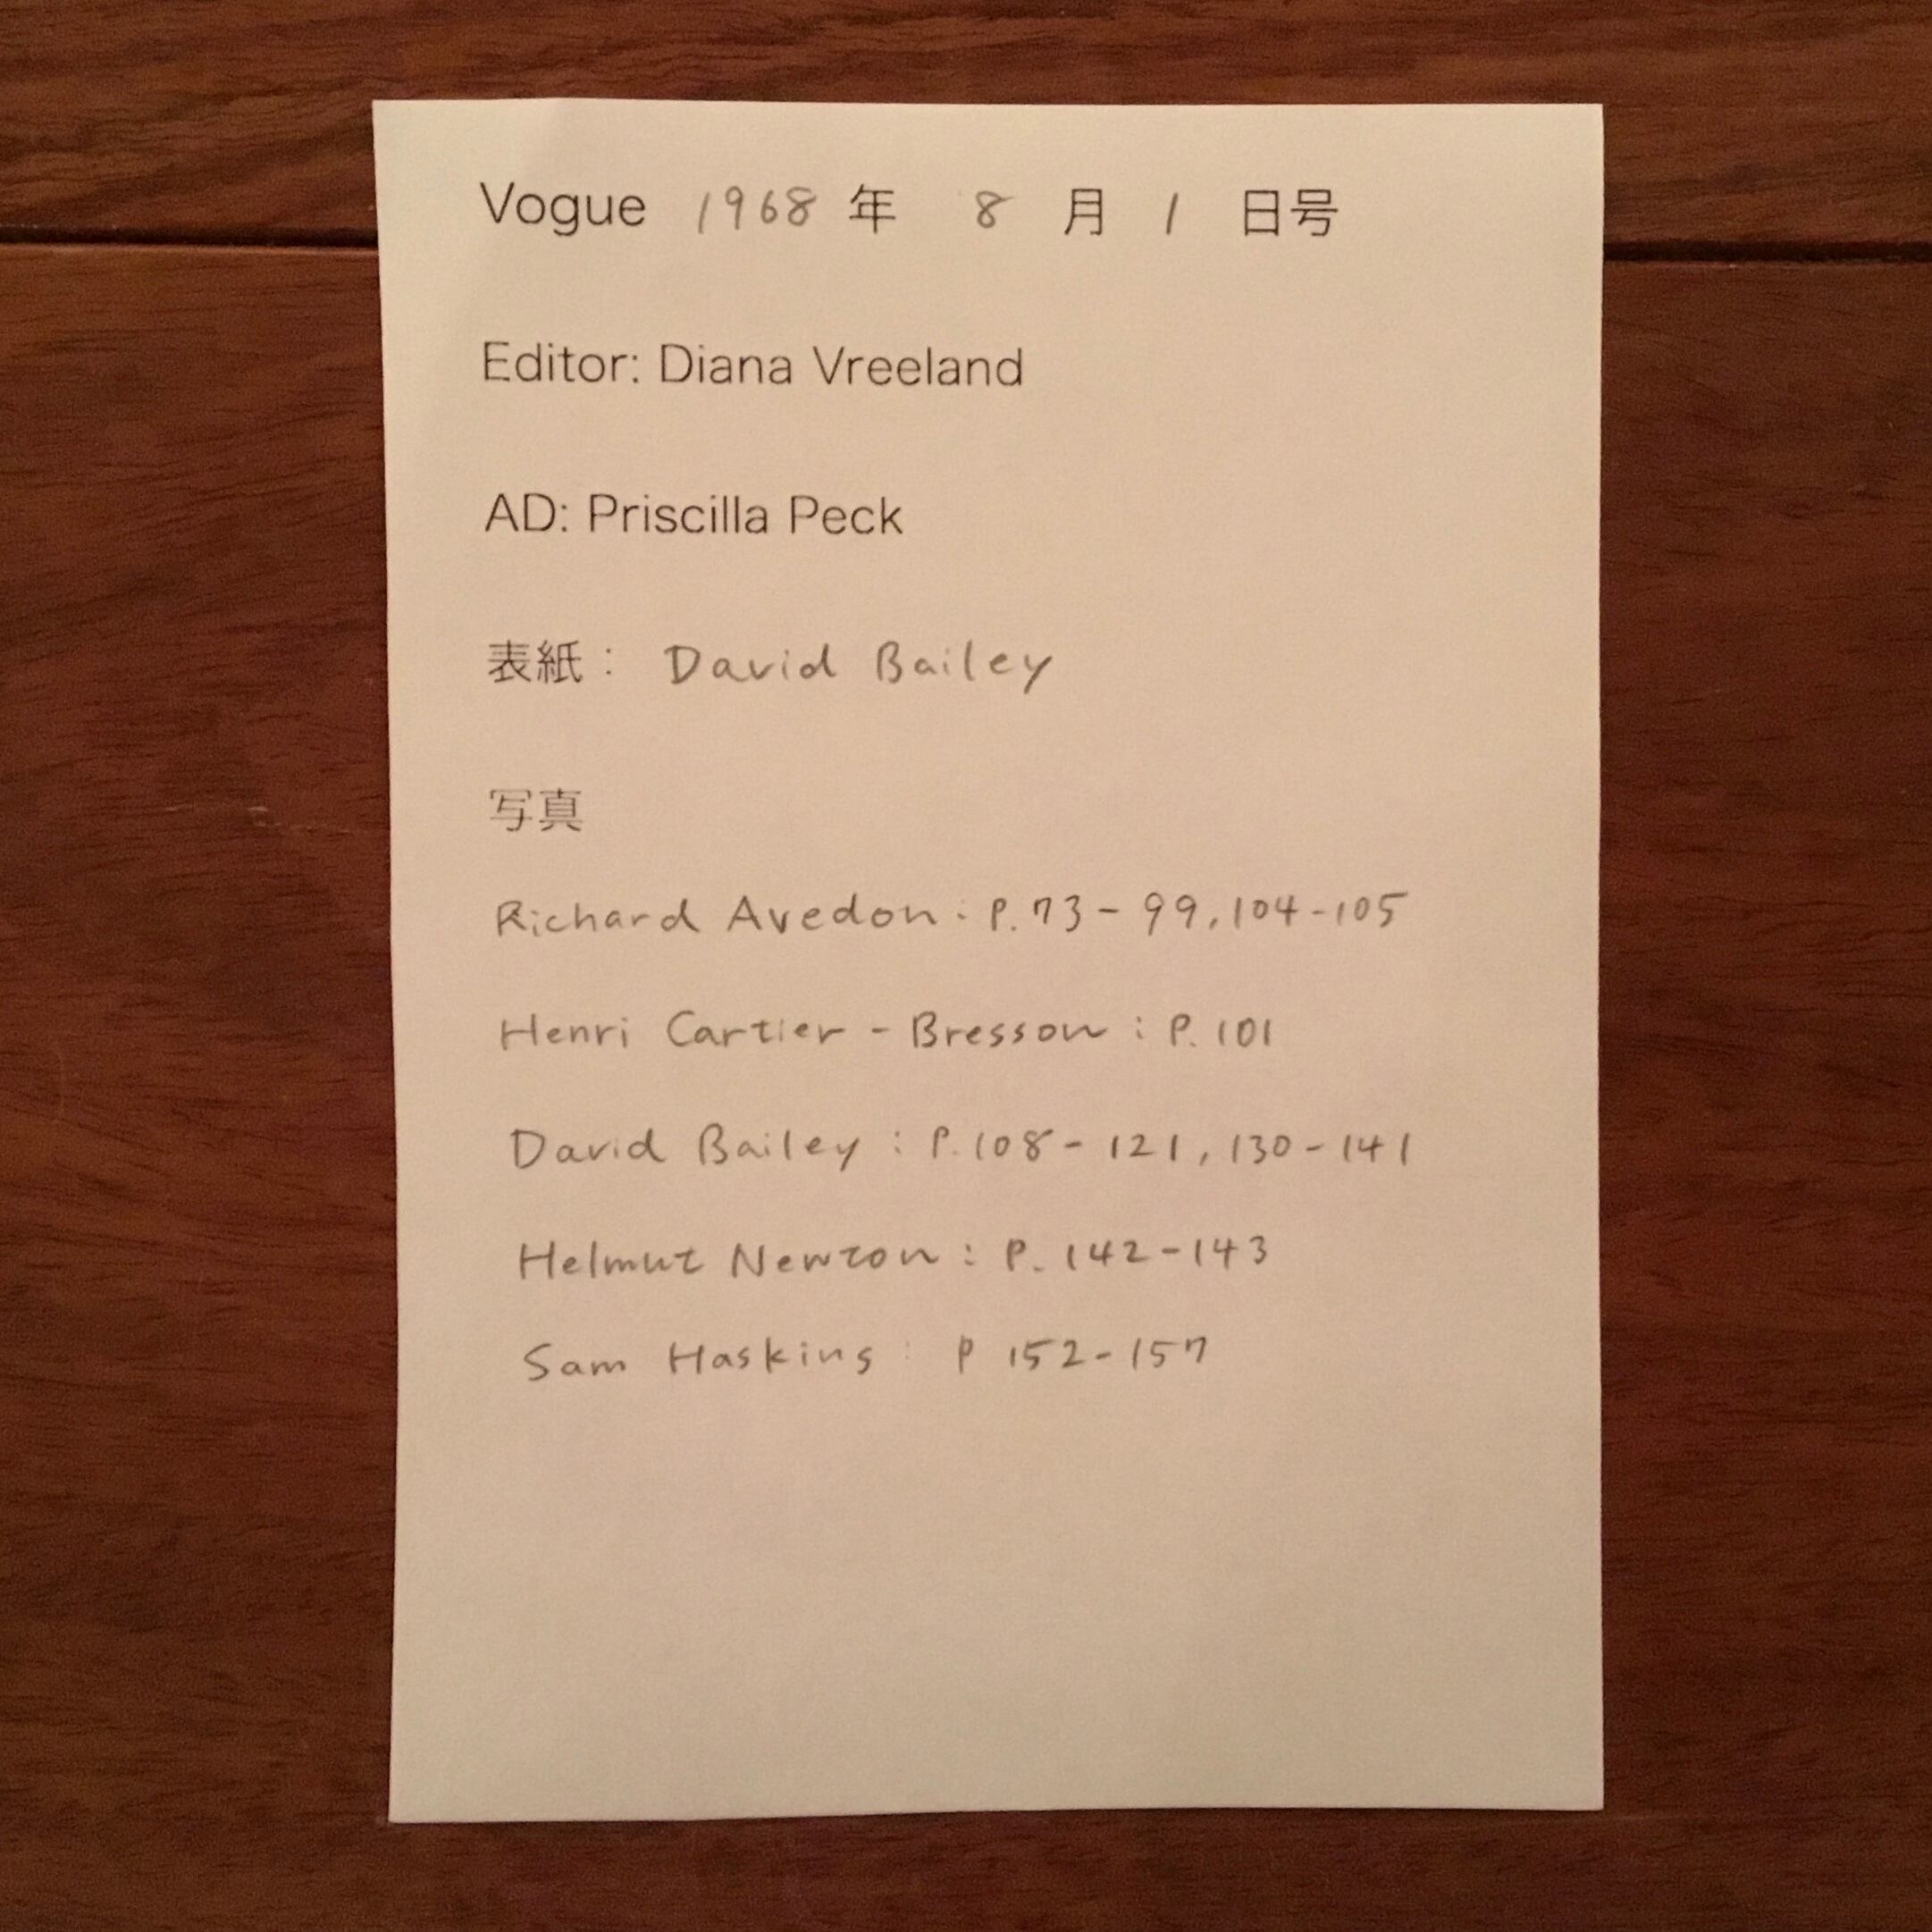 Vogue 1968 年 8 月 1 日号
Editor: Diana Vreeland
AD: Priscilla Peck
表紙： David Bailey
写真
Richard Avedon : P.73 - 99, 104-105
Henri Cartier - Bresson : P. 101
David Bailey : P.108 - 121, 130 - 141
Helmut Newton : P. 142-143
Sam Haskins : P 152-157